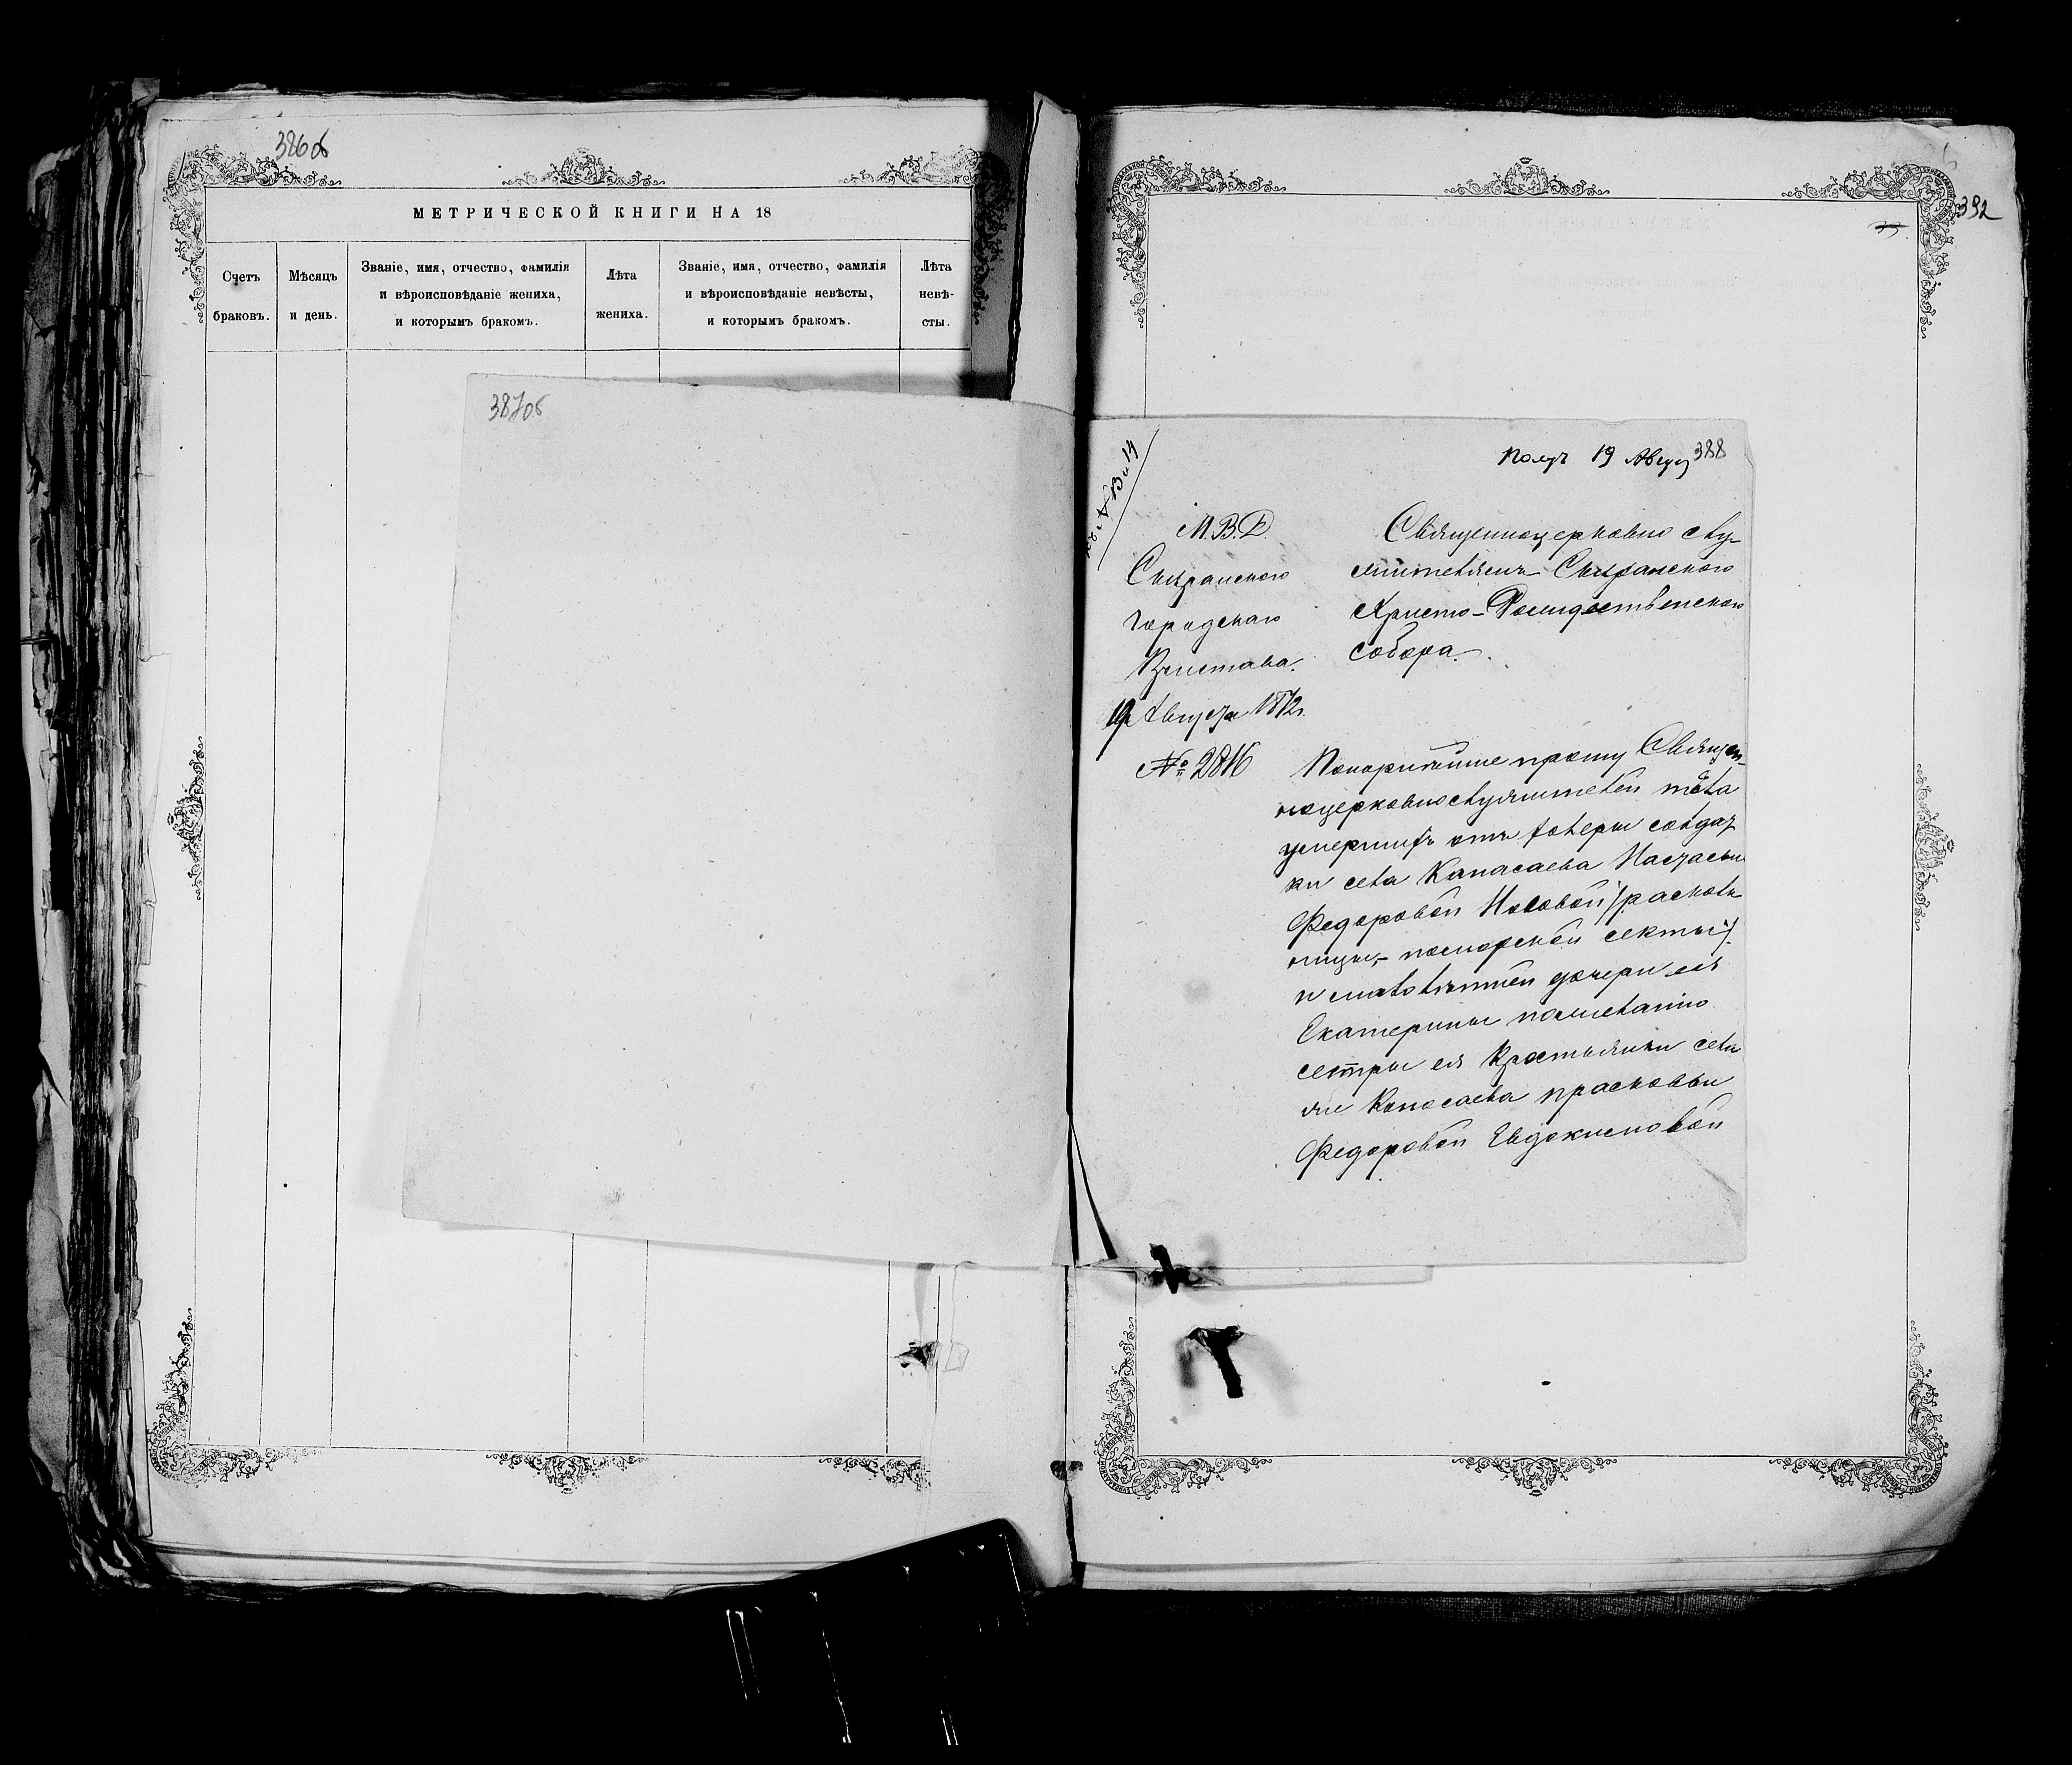 386об
МЕТРИЧЕСКОЙ КНИГИ НА 18
Счетъ браковъ.
Мѣсяцъ и день.
Званіе, имя, отчество, фамилія
и вѣроисповѣданіе жениха,
и которымъ бракомъ.
Лѣта жениха.
Званіе, имя, отчество, фамилія
и вѣроисповѣданіе невѣсты,
и которымъ бракомъ.
Лѣта невѣ-
сты.
387об
392
388
Къ № 13 и 14
Получ 19 Август
М.В.Д.
Сызранского
Городскаго
Пристава.
19 Августа 1872г.
№ 2816
Священноцерковно слу-
жителямъ Сызранского
Христо-Рождественского
собора.
Покорнѣйше прошу Священ-
ноцерковнослужителей тѣла
умершихъ отъ холеры солдат
ки села Канасаева Настасьи
Федоровой Носовой (расколь
ницы,- поморской секты)
и малолѣтней дочери ея
Екатерины по желанію
сестры ея крестьянки села
же Канасаева Прасковьи
Федоровой Евдокимовой